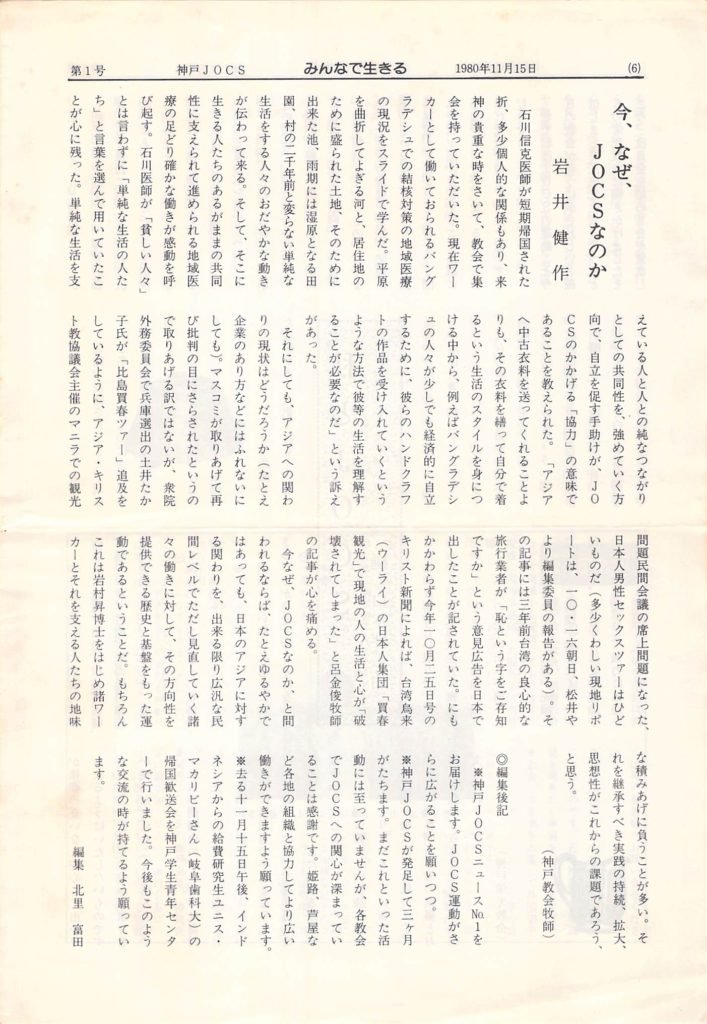 第1号
神戸JOCS
みんなで生きる
1980年11月15日
(6)
今、なぜ、
JOCSなのか
岩井健作
石川信克医師が短期帰国された
折、多少個人的な関係もあり、来
神の貴重な時をさいて、教会で集
会を持っていただいた。現在ワー
カーとして働いておられるバング
ラデシュでの結核対策の地域医療
の現況をスライドで学んだ。平原
を曲折してよぎる河と、居住地の
ために盛られた土地、そのために
出来た池、雨期には湿原となる田
園、村の二千年前と変らない単純な
生活をする人々のおだやかな動き
が伝わって来る。そして、そこに
生きる人たちのあるがままの共同
性に支えられて進められる地域医
療の足どり確かな働きが感動を呼
び起す。石川医師が「貧しい人々」
とは言わずに「単純な生活の人た
ち」と言葉を選んで用いていたこ
とが心に残った。単純な生活を支
えている人と人との純なつながり
としての共同性を、強めていく方
向で、自立を促す手助けが、JO
CSのかかげる「協力」の意味で
あることを教えられた。「アジア
へ中古衣料を送ってくれることよ
りも、その衣料を繕って自分で着
るという生活のスタイルを身につ
ける中から、例えばバングラデシ
ュの人々が少しでも経済的に自立
するために、彼らのハンドクラフ
トの作品を受け入れていくという
ような方法で彼等の生活を理解す
ることが必要なのだ」という訴え
があった。
それにしても、アジアへの関わ
りの現状はどうだろうか(たとえ
企業のあり方などにはふれないに
しても)。マスコミが取りあげて再
び批判の目にさらされたというの
で取りあげる訳ではないが、衆院
外務委員会で兵庫選出の土井たか
子氏が「比島買春ツァー」追及を
しているように、アジア・キリス
ト教協議会主催のマニラでの観光
問題民間会議の席上問題になった、
日本人男性セックスツァーはひど
いものだ(多少くわしい現地リポ
ートは、一〇・一六朝日、松井や
より編集委員の報告がある)。そ
の記事には三年前台湾の良心的な
旅行業者が「恥という字をご存知
ですか」という意見広告を日本で
出したことが記されていた。にも
かかわらず今年一〇月二五日号の
キリスト新聞によれば、台湾烏来
(ウーライ)の日本人集団「買春
観光」で現地の人の生活と心が「破
壊されてしまった」と呂金俊牧師
の記事が心を痛める。
今なぜ、JOCSなのか、と問
われるならば、たとえゆるやかで
はあっても、日本のアジアに対す
る関わりを、出来る限り広汎な民
間レベルでただし見直していく諸
々の働きに対して、その方向性を
提供できる歴史と基盤をもった運
動であるということだ。もちろん
これは岩村昇博士をはじめ諸ワー
カーとそれを支える人たちの地味
な積みあげに負うことが多い。そ
れを継承すべき実践の持続、拡大、
思想性がこれからの課題であろう、
と思う。
(神戸教会牧師)
◎編集後記
※神戸JOCSニュースNo.1を
お届けします。JOCS運動がさ
らに広がることを願いつつ。
※神戸JOCSが発足して三ヶ月
がたちます。まだこれといった活
動には至っていませんが、各教会
でJOCSへの関心が深まってい
ることは感謝です。姫路、芦屋な
ど各地の組織と協力してより広い
働きができますよう願っています。
※去る十一月十五日午後、インド
ネシアからの給費研究生ユニス・
マカリビーさん(岐阜歯科大)の
帰国歓送会を神戸学生青年センタ
ーで行いました。今後もこのよう
な交流の時が持てるよう願ってい
ます。
編集 北里 富田